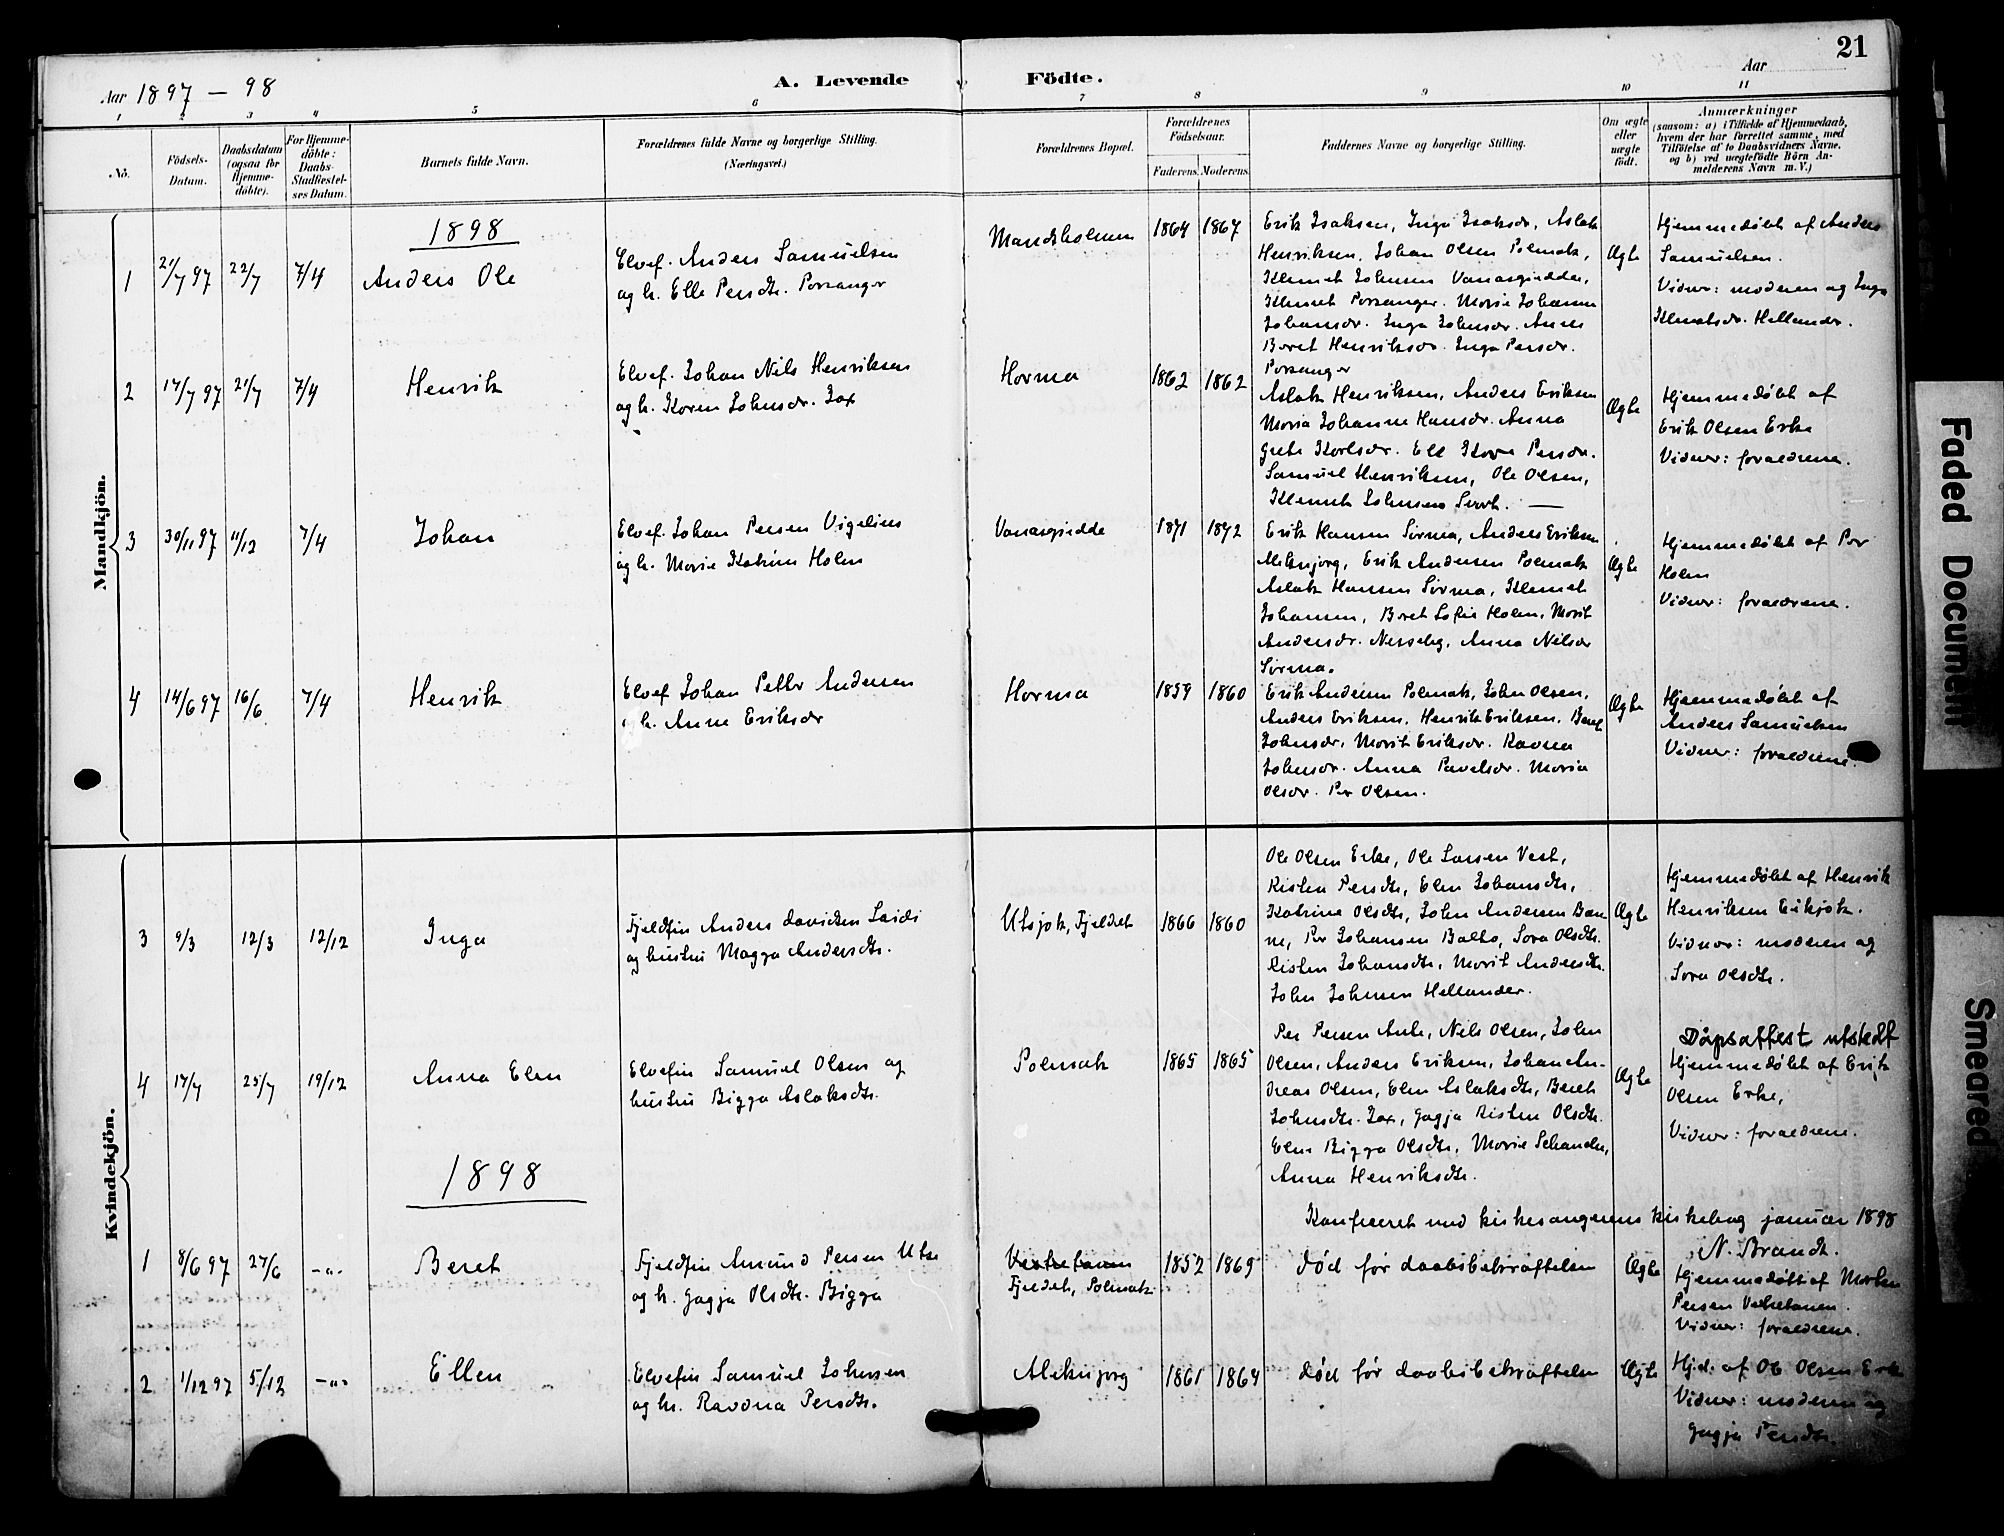 21
Aar 1897 - 98
A. Levende Födte.
Aar
1 2 3 4 5 6 7 8 9 10 11
No.
Födsels-Datum.
Daabsdatum (ogsaa for Hjemme-döbte).
For Hjemme-döbte: Daabs-Stadfæstel-ses Datum.
Barnets fulde Navn.
Forældrenes fulde Navne og borgerlige Stilling.
(Næringsvei.)
Forældrenes Bopæl.
Forældrenes Födselsaar.
Faderens. Moderens.
Faddernes Navne og borgerlige Stilling.
Om ægte eller uægte födt.
Anmærkninger
(saasom: a) i Tilfælde af Hjemmedaab,
hvem der har forrettet samme, med
Tilföielse af to Daabsvidners Navne,
og b) ved uægtefödte Börn An-
melderens Navn m. V.)
Mandkjön.
1898
1 21/7 97 22/7 7/4 Anders Ole
Elvef. Anders Samuelsen
og h. Elle Persdtr. Porsanger
Mandsholmen 1864 1867
Erik Isaksen, Inga Isaksdr, Aslak
Henriksen, Johan Olsen Polmak,
Klemet Johnsen Vanargiedde,
Klemet Porsanger. Marie Johanne
Johansdr. Inga Johnsdr. Anne
Beret Henriksdr. Inga Persdr.
Porsanger
Ægte
Hjemmedøbt af Anders
Samuelsen.
Vidner: moderen og Inga
Klemetsdr. Hellander.
2 17/7 97 21/7 7/4 Henrik
Elvef. Johan Nils Henriksen
og h. Karen Johnsdr. Jax
Horma 1862 1862
Aslak Henriksen, Anders Eriksen
Maria Johanne Hansdr. Anna
Grete Karlsdr. Ell Kare Persdr.
Samuel Henriksen, Ole Olsen,
Klemet Johnsen
Ægte
Hjemmedøbt af
Erik Olsen Erke
Vidner: forældrene.
3 30/11 97 11/12 7/4 Johan
Elvef. Johan Persen Vigelius
og h. Marie Katrine Holm
Vanargiedde 1871 1872
Erik Hansen Sirma, Anders Eriksen
Aleknjarg, Erik Andersen Polmak
Aslak Hansen Sirma, Klemet
Johansen, Beret Sofie Holm, Marit
Andersdr. Nesseby, Anna Nilsdr
Sirma.
Ægte
Hjemmedøbt af Per
Holm
Vidner: forældrene.
4 14/6 97 16/6 7/4 Henrik
Elvef Johan Petter Andersen
og h. Anne Eriksdr
Horma 1859 1860
Erik Andersen Polmak, John Olsen,
Anders Eriksen, Henrik Eriksen, Beret
Johnsdr, Marit Eriksdr. Ravna
Johnsdr. Anna Pavelsdr. Maria
Olsdr. Per Olsen.
Ægte
Hjemmedøbt af
Anders Samuelsen
Vidner: forældrene.
Kvindekjön.
3 9/3 12/3 12/12 Inga
Fjeldfin Anders Davidsen Laiti
og hustru Magga Andersdtr.
Utsjok, Fjeldet 1866 1860
Ole Olsen Erke, Ole Larsen Vest,
Risten Persdtr, Elen Johansdtr,
Katrine Olsdtr, John Andersen Ban
ne, Per Johansen Balto, Sara Olsdtr.
Risten Johansdtr, Marit Andersdtr.
John Johnsen Hellander.
Ægte
Hjemmedøbt af Henrik
Henriksen Evkjok.
Vidner: moderen og
Sara Olsdtr.
4 17/7 25/7 19/12 Anna Elen
Elvefin Samuel Olsen og
hustru Bigga Aslaksdtr.
Polmak 1865 1865
Per Persen Aute, Nils Olsen, John
Olsen, Anders Eriksen, Johan An-
dreas Olsen, Elen Aslaksdtr, Beret
Johnsdtr. Jax, Gagja Risten Olsdtr.
Elen Bigga Olsdtr, Marie Schander,
Anna Henriksdtr.
Ægte
Dåpsattest utstedt
Hjemmedøbt af Erik
Olsen Erke,
Vidner: forældrene.
1898
Konfereret med kirkesangerens kirkebog januar 1898
N. Brandt.
1 8/6 97 27/6 -"- Beret
Fjeldfin Amund Persen Utse
og h. Gagja Olsdtr. Bigga
Vestretanen
Fjeldet, Polmak 1852 1869
død før daabsbekræftelsen
Ægte
Hjemmedøbt af Morten
Persen Vestretanen.
Vidner: forældrene.
2 1/12 97 5/12 -"- Ellen
Elvefin Samuel Johnsen
og h. Ravdna Persdtr.
Aleknjarg 1861 1864
død før daabsbekræftelsen
Ægte
Hj.d. af Ole Olsen Erke
Vidner: moderen og
Gagja Persdtr.
Faded Document
Smeared